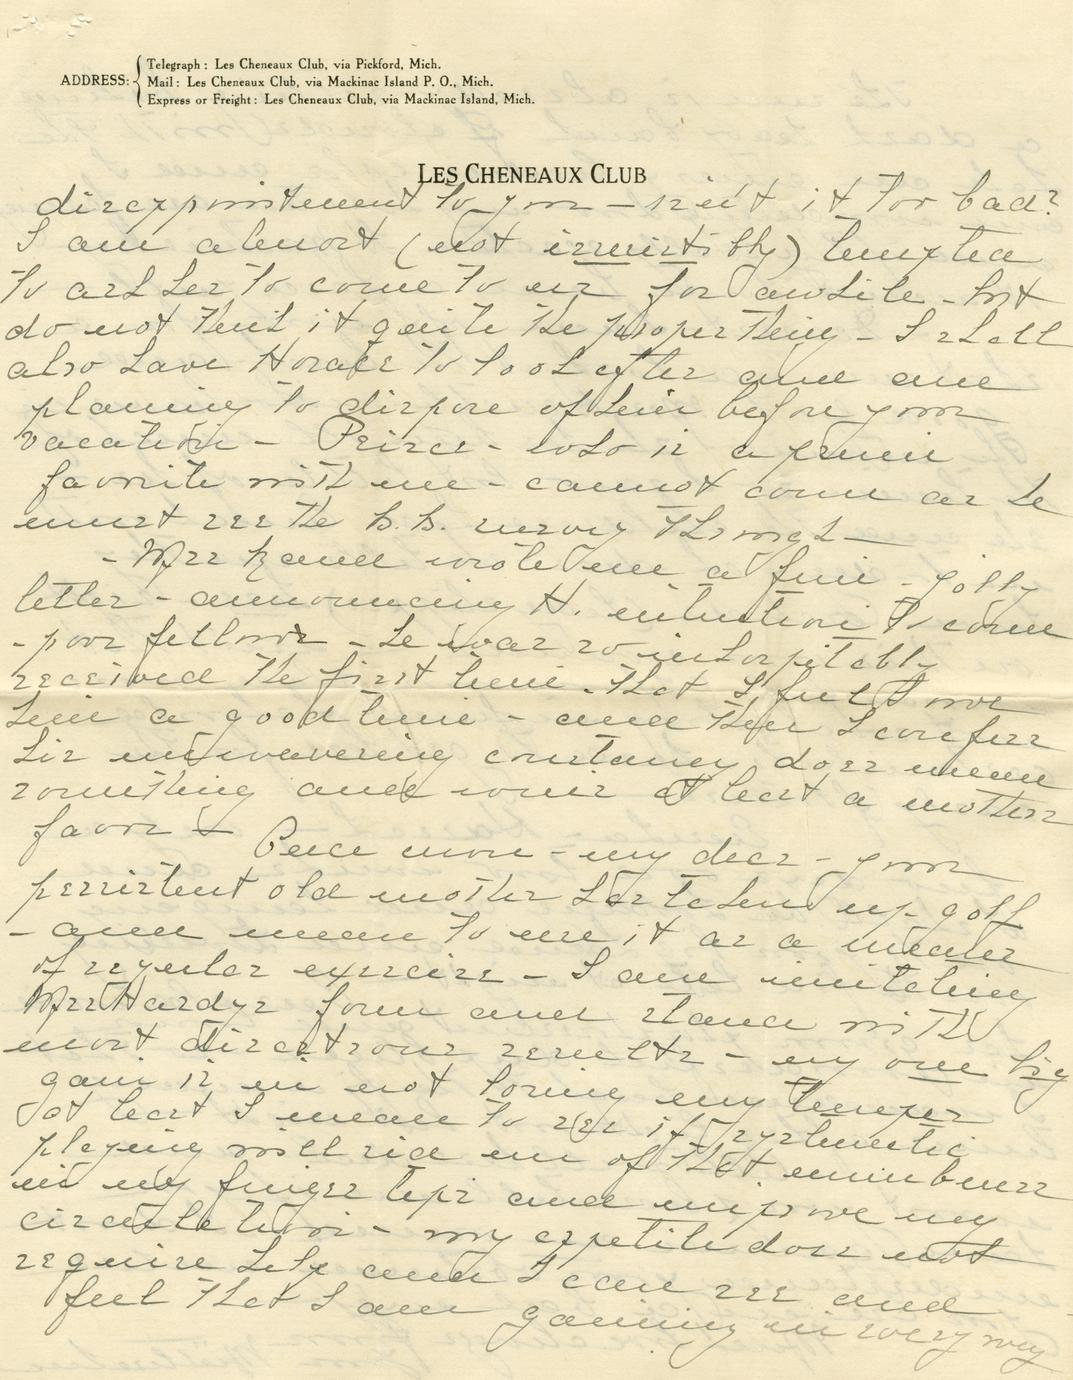 ADDRESS:
Telegraph : Les Cheneaux Club, via Pickford, Mich.
Mail : Les Cheneaux Club, via Mackinac Island P. O., Mich.
Express or Freight : Les Cheneaux Club, via Mackinac Island, Mich.
LES CHENEAUX CLUB
disappointment to you - isn't it too bad?
I am almost (not irresistibly) tempted
to ask her to come to us for awhile - but
do not think it quite the proper thing - I shall
also have Horace to look after and am
planning to dispose of him before your
vacation - Peirce - who is a prime
favorite with me - cannot come as he
must see the h.h. survey through -
- Mrs Rand wrote me a fine - jolly
letter - announcing H. intention to come
- poor fellow - he was so inhospitably
received the first time - that I feel I owe
him a good time - and then I confess
his unwavering constancy does mean
something and wins at least a mothers
favor -
Once more - my dear - your
persistent old mother has taken up golf
- and mean to use it as a means
of regular exercise - I am imitating
Mrs Hardys form and stand with
most disastrous results - my one big
gain is in not losing my temper
at least I mean to see if systematic
playing will rid me of that numbness
in my finger tips and improve my
circulation - my appetite does not
require help and I can see and
feel that I am gaining in every way